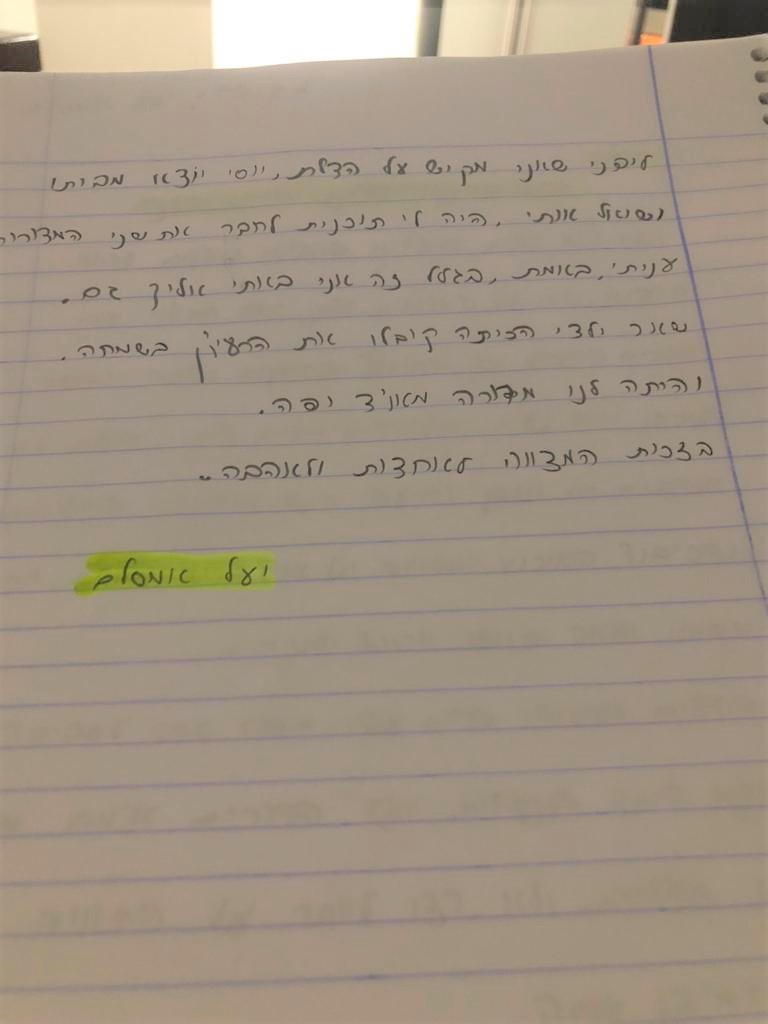 ליפני שאני מקיש על הדלת, יוסי יוצא מביתו
ושואל אותי, היה לי תוכנית לחבר את שני המדורות
עניתי, באמת, בגלל זה אני באתי אליך גם.
שאר ילדי הכיתה קיבלו את הרעיון בשמחה.
והיתה לנו מדורה מאוד יפה.
בזכות המצווה לאוחדות ולאהבה..
יעל אמסלם